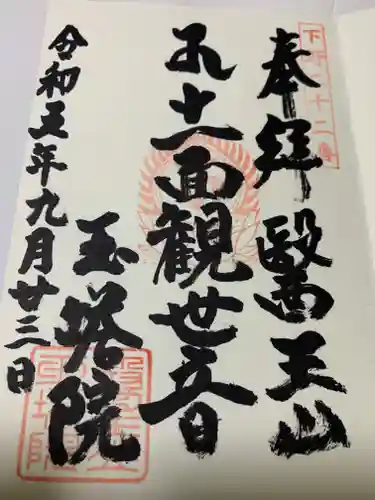 下野二十二番
奉拝 醫王山
十一面観世音
玉塔院
令和五年九月廿三日